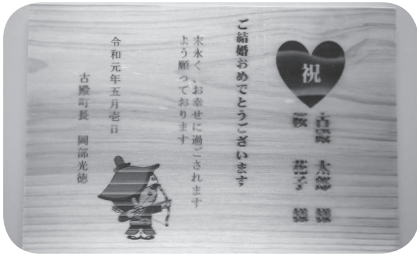 祝
古殿 太郎 様
桜 花子 様
ご結婚おめでとうございます
末永くお幸せに過ごされます
よう願っております
令和元年五月壱日
古殿町長 岡部光徳